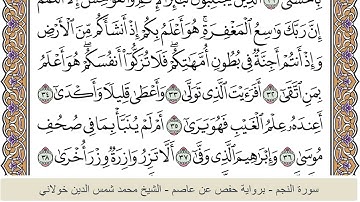 بِالْحُسْنَى ٣١ الَّذِينَ يَجْتَنِبُونَ كَبَائِرَ الْإِثْمِ وَالْفَوَاحِشَ إِلَّا اللَّمَمَ
إِنَّ رَبَّكَ وَاسِعُ الْمَغْفِرَةِ هُوَ أَعْلَمُ بِكُمْ إِذْ أَنشَأَكُم مِّنَ الْأَرْضِ
وَإِذْ أَنتُمْ أَجِنَّةٌ فِي بُطُونِ أُمَّهَاتِكُمْ فَلَا تُزَكُّوا أَنفُسَكُمْ هُوَ أَعْلَمُ
بِمَنِ اتَّقَى ٣٢ أَفَرَأَيْتَ الَّذِي تَوَلَّى ٣٣ وَأَعْطَى قَلِيلًا وَأَكْدَى ٣٤
أَعِندَهُ عِلْمُ الْغَيْبِ فَهُوَ يَرَى ٣٥ أَمْ لَمْ يُنَبَّأْ بِمَا فِي صُحُفِ
مُوسَى ٣٦ وَإِبْرَاهِيمَ الَّذِي وَفَّى ٣٧ أَلَّا تَزِرُ وَازِرَةٌ وِزْرَ أُخْرَى ٣٨
سورة النجم - برواية حفص عن عاصم - الشيخ محمد شمس الدين خولاني